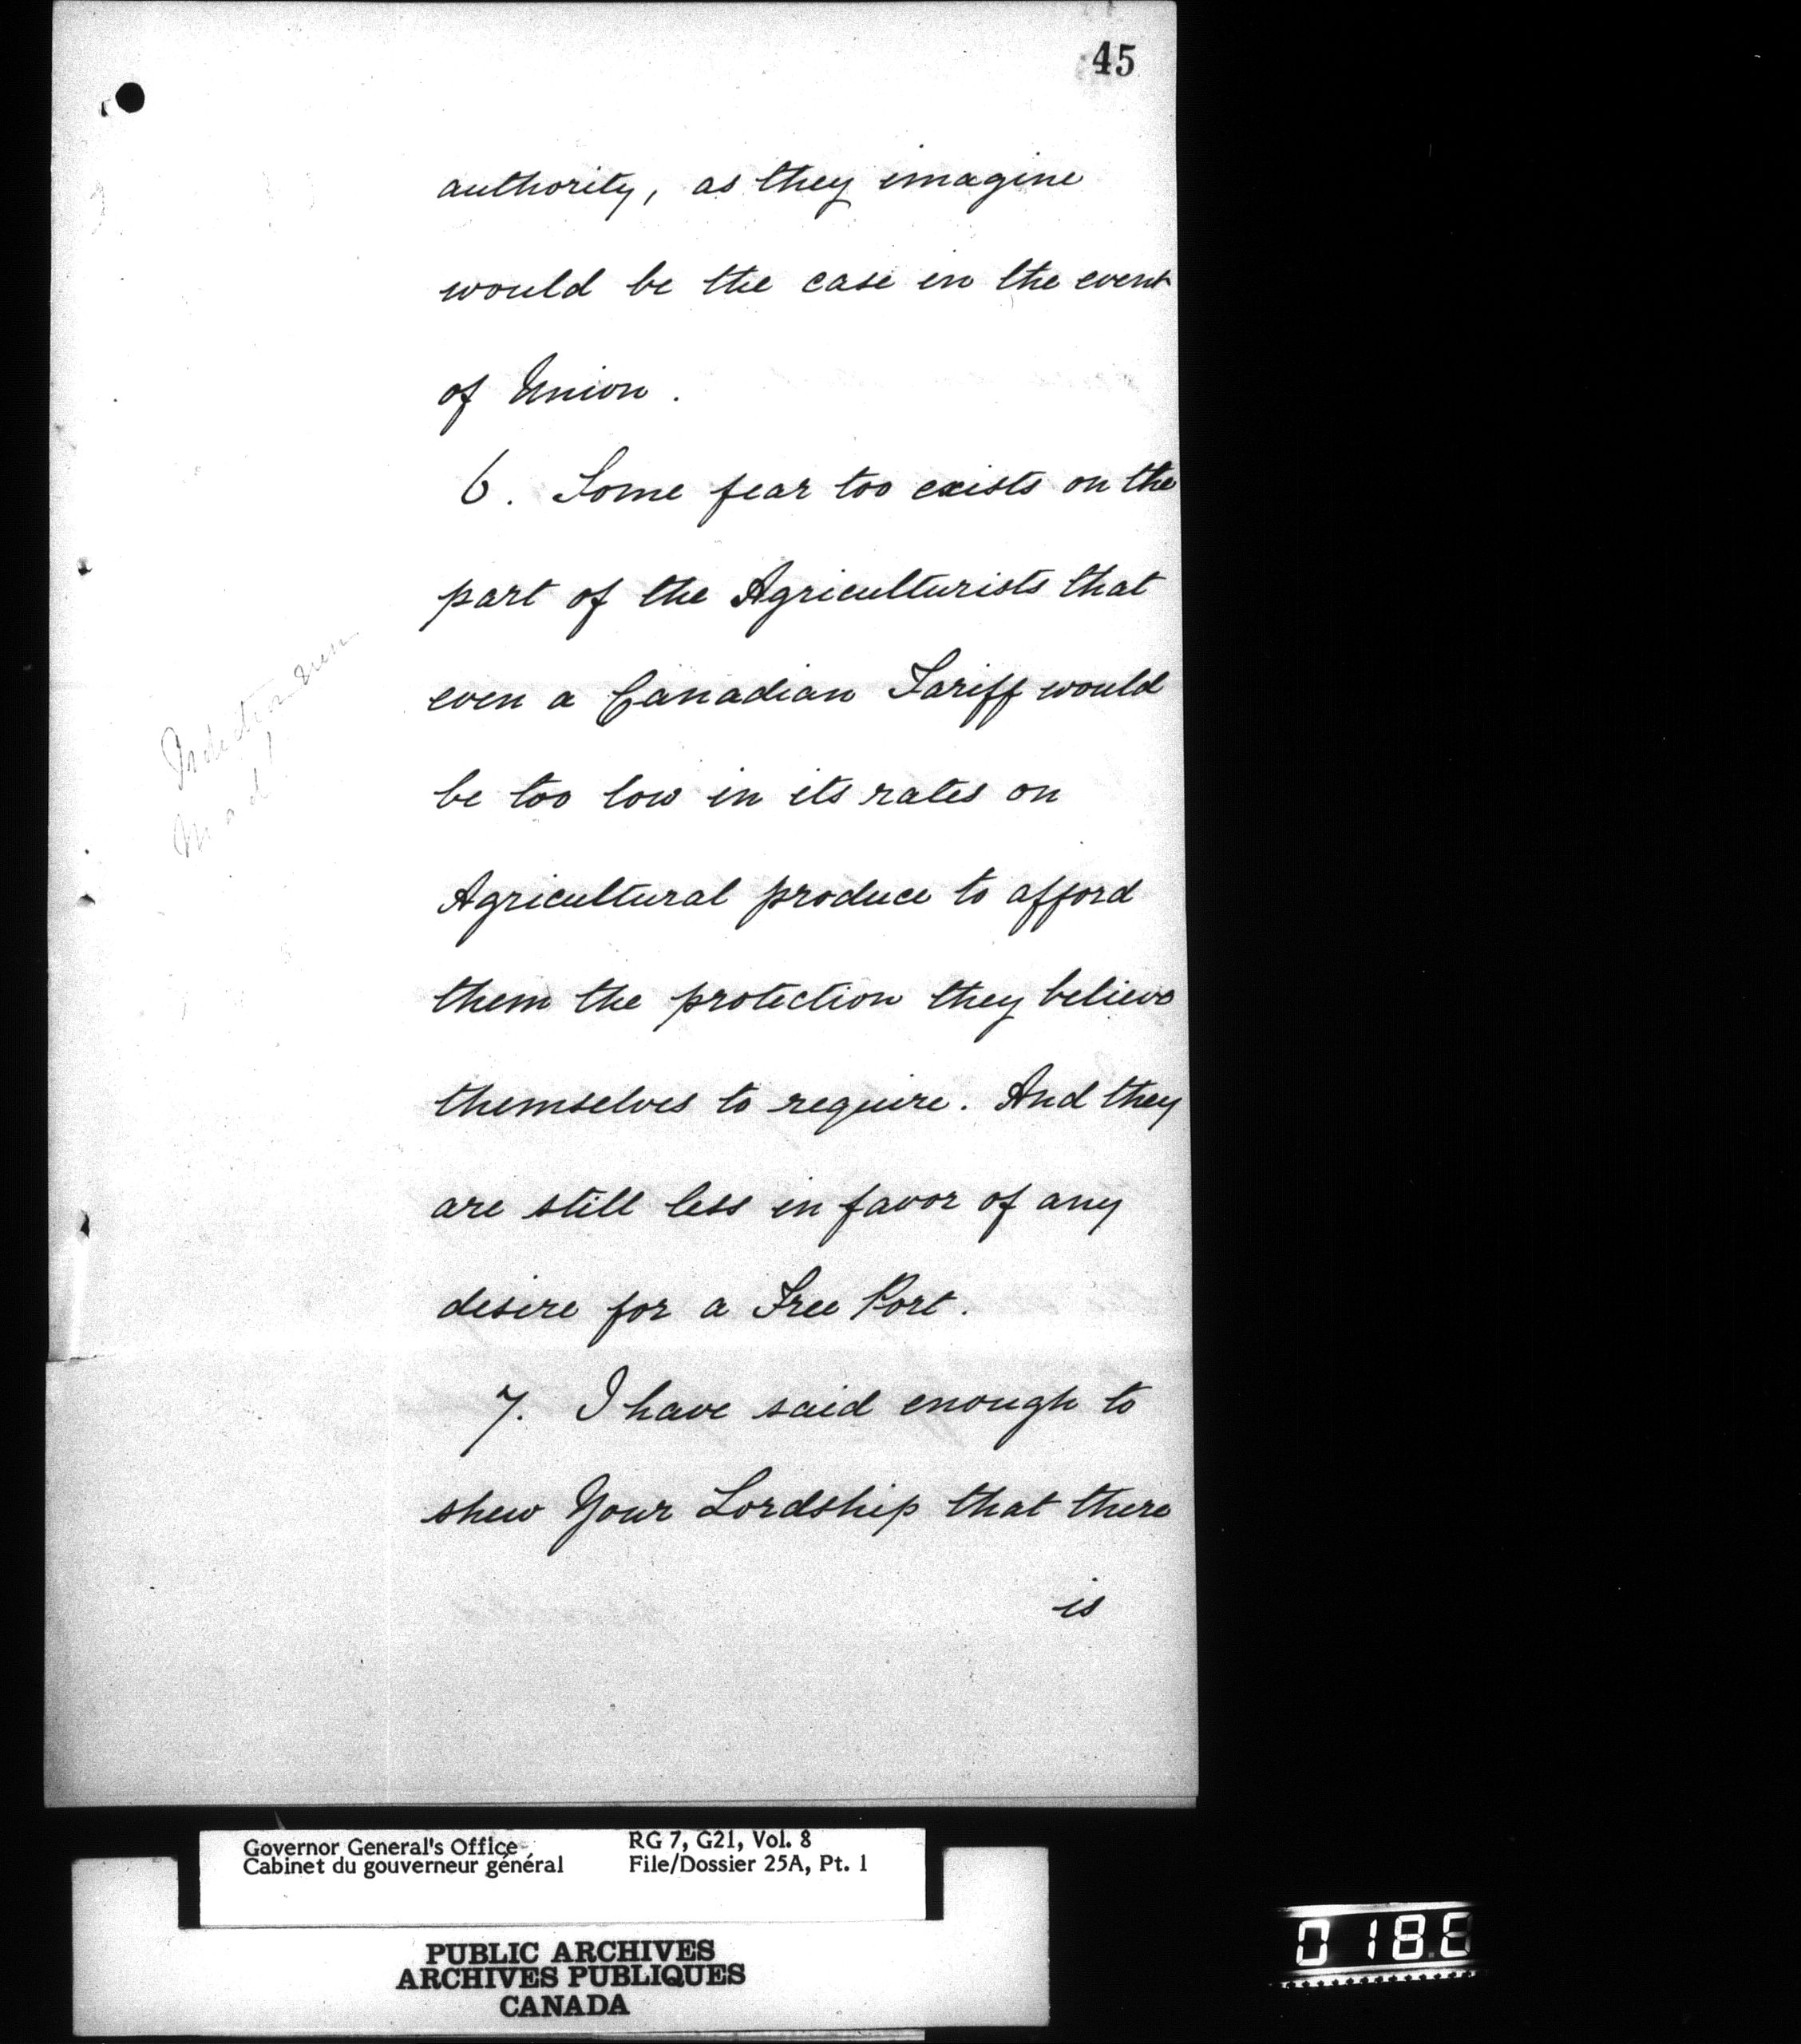 45
authority, as they imagine
would be the case in the event
of Union.
6. Some fear too exists on the
part of the Agriculturists that
even a Canadian Tariff would
be too low in its rates on
Agricultural produce to afford
them the protection they believe
themselves to require. And they
are still less in favor of any
desire for a Free Port.
7. I have said enough to
shew Your Lordship that there
is
Protection run
mad!
Governor General's Office
Cabinet du gouverneur général
RG 7, G21, Vol. 8
File/Dossier 25A, Pt. 1
PUBLIC ARCHIVES
ARCHIVES PUBLIQUES
CANADA